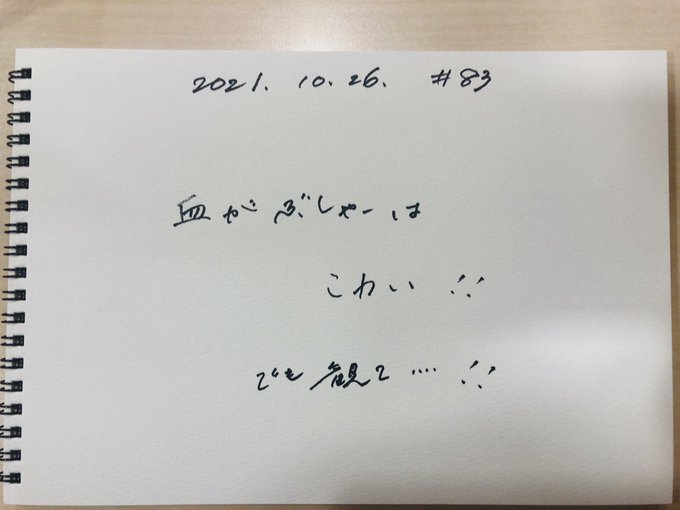 2021. 10. 26. #83
血がぶしゃーは
こわい!!
でも観て....!!